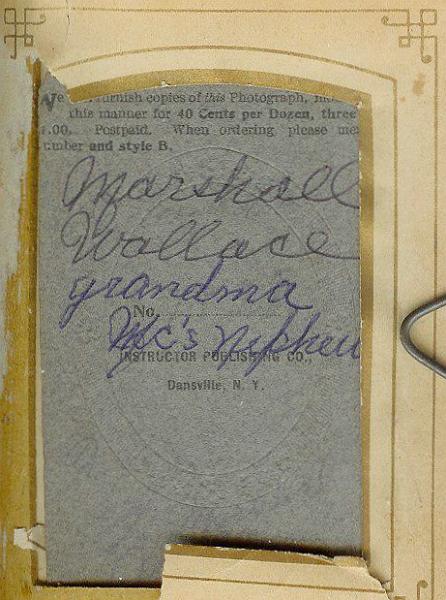 furnish copies of this Photograph,
this manner for 40 Cents per Dozen, three
1.00. Postpaid. When ordering please
and style B.
Marshall
Wallace
grandma
No.
Mc's Nephew
INSTRUCTOR PUBLISHING CO.,
Dansville, N. Y.